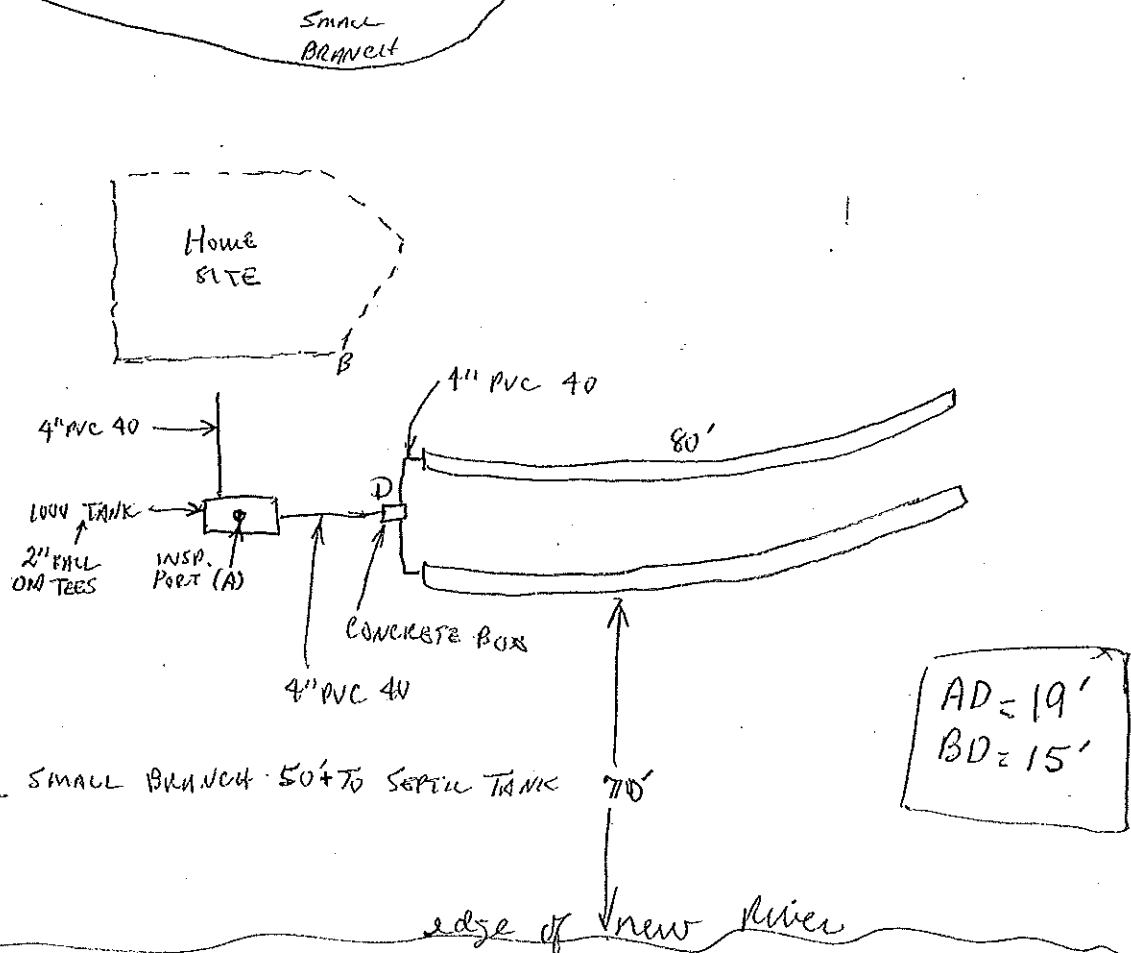 SMALL
BRANCH
HOME
SITE
B
4" PVC 40
4" PVC 40
80'
D
1000 TANK
2" FALL
ON TEES
INSP.
PORT (A)
CONCRETE BOX
4" PVC 40
AD = 19'
BD = 15'
SMALL BRANCH 50'+ TO SEPTIC TANK
70'
edge of new River